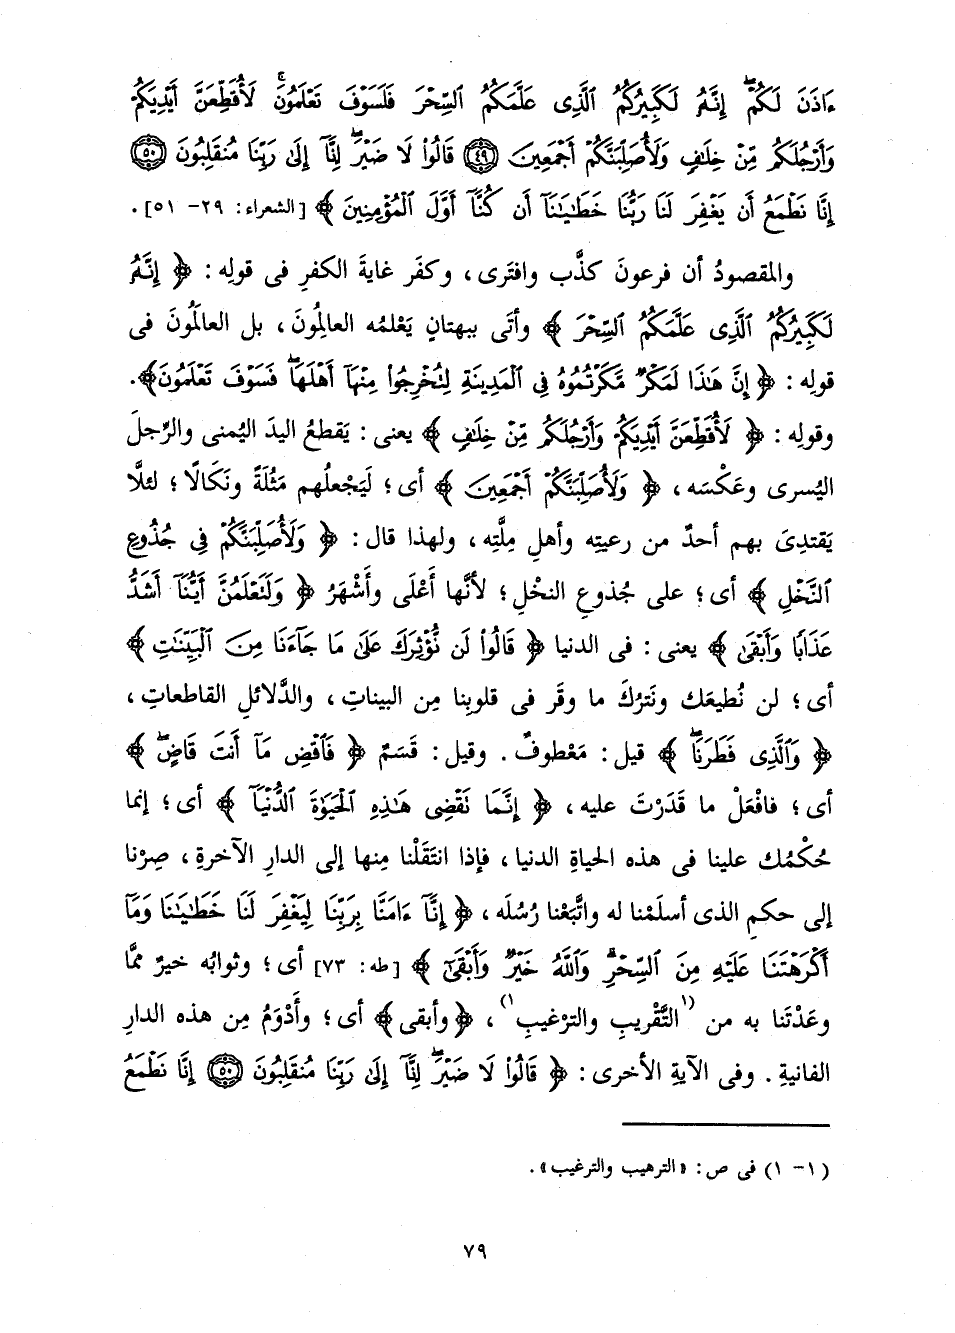 ءَاذَنَ لَكُمْ ۖ إِنَّهُۥ لَكَبِيرُكُمُ ٱلَّذِى عَلَّمَكُمُ ٱلسِّحْرَ فَلَسَوْفَ تَعْلَمُونَ ۚ لَأُقَطِّعَنَّ أَيْدِيَكُمْ
وَأَرْجُلَكُم مِّنْ خِلَـٰفٍ وَلَأُصَلِّبَنَّكُمْ أَجْمَعِينَ ﴿٤٩﴾ قَالُوا۟ لَا ضَيْرَ ۖ إِنَّآ إِلَىٰ رَبِّنَا مُنقَلِبُونَ ﴿٥٠﴾
إِنَّا نَطْمَعُ أَن يَغْفِرَ لَنَا رَبُّنَا خَطَـٰيَـٰنَآ أَن كُنَّآ أَوَّلَ ٱلْمُؤْمِنِينَ ﴾ [الشعراء: ٢٩- ٥١] .
والمقصودُ أن فرعونَ كذَّب وافتَرى، وكفَر غايةَ الكفرِ فى قولِه: ﴿ إِنَّهُۥ
لَكَبِيرُكُمُ ٱلَّذِى عَلَّمَكُمُ ٱلسِّحْرَ ﴾ وأتَى ببهتانٍ يَعْلمُه العالِمُونَ، بل العالَمُونَ فى
قولِه: ﴿ إِنَّ هَـٰذَا لَمَكْرٌ مَّكَرْتُمُوهُ فِى ٱلْمَدِينَةِ لِتُخْرِجُوا۟ مِنْهَآ أَهْلَهَا ۖ فَسَوْفَ تَعْلَمُونَ﴾.
وقولِه: ﴿ لَأُقَطِّعَنَّ أَيْدِيَكُمْ وَأَرْجُلَكُم مِّنْ خِلَـٰفٍ ﴾ يعنى: يَقطعُ اليدَ اليُمنى والرِّجلَ
اليُسرى وعَكْسَه، ﴿ وَلَأُصَلِّبَنَّكُمْ أَجْمَعِينَ ﴾ أى؛ لَيَجْعلُهم مَثُلَةً ونَكَالًا؛ لئلَّا
يَقتدِىَ بهم أحدٌ من رعيتِه وأهلِ مِلَّتِه، ولهذا قال: ﴿ وَلَأُصَلِّبَنَّكُمْ فِى جُذُوعِ
ٱلنَّخْلِ ﴾ أى؛ على جُذوعِ النخْلِ؛ لأنَّها أَعْلَى وأَشْهَرُ ﴿ وَلَتَعْلَمُنَّ أَيُّنَآ أَشَدُّ
عَذَابًا وَأَبْقَىٰ ﴾ يعنى: فى الدنيا ﴿ قَالُوا۟ لَن نُّؤْثِرَكَ عَلَىٰ مَا جَآءَنَا مِنَ ٱلْبَيِّنَـٰتِ ﴾
أى؛ لن نُطيعَك ونَترُكَ ما وقَر فى قلوبِنا مِن البيناتِ، والدَّلائلِ القاطعاتِ،
﴿ وَٱلَّذِى فَطَرَنَا ۖ ﴾ قيل: مَعْطوفٌ. وقيل: قَسَمٌ ﴿ فَٱقْضِ مَآ أَنتَ قَاضٍ ۖ ﴾
أى؛ فافْعَلْ ما قَدَرْتَ عليه، ﴿ إِنَّمَا تَقْضِى هَـٰذِهِ ٱلْحَيَوٰةَ ٱلدُّنْيَآ ﴾ أى؛ إنما
حُكْمُك علينا فى هذه الحياةِ الدنيا، فإذا انتَقَلْنا مِنها إلى الدارِ الآخرةِ، صِرْنا
إلى حكمِ الذى أسلَمْنا له واتَّبَعْنا رُسُلَه، ﴿ إِنَّآ ءَامَنَّا بِرَبِّنَا لِيَغْفِرَ لَنَا خَطَـٰيَـٰنَا وَمَآ
أَكْرَهْتَنَا عَلَيْهِ مِنَ ٱلسِّحْرِ ۗ وَٱللَّهُ خَيْرٌ وَأَبْقَىٰٓ ﴾ [طه: ٧٣] أى؛ وثوابُه خيرٌ ممَّا
وعَدْتَنا به من (١التَّقْريبِ والترْغيبِ١)، ﴿وأبقى﴾ أى؛ وأَدْوَمُ مِن هذه الدارِ
الفانيةِ. وفى الآيةِ الأخرى: ﴿ قَالُوا۟ لَا ضَيْرَ ۖ إِنَّآ إِلَىٰ رَبِّنَا مُنقَلِبُونَ ﴿٥٠﴾ إِنَّا نَطْمَعُ
(١- ١) فى ص: «الترهيب والترغيب».
٧٩